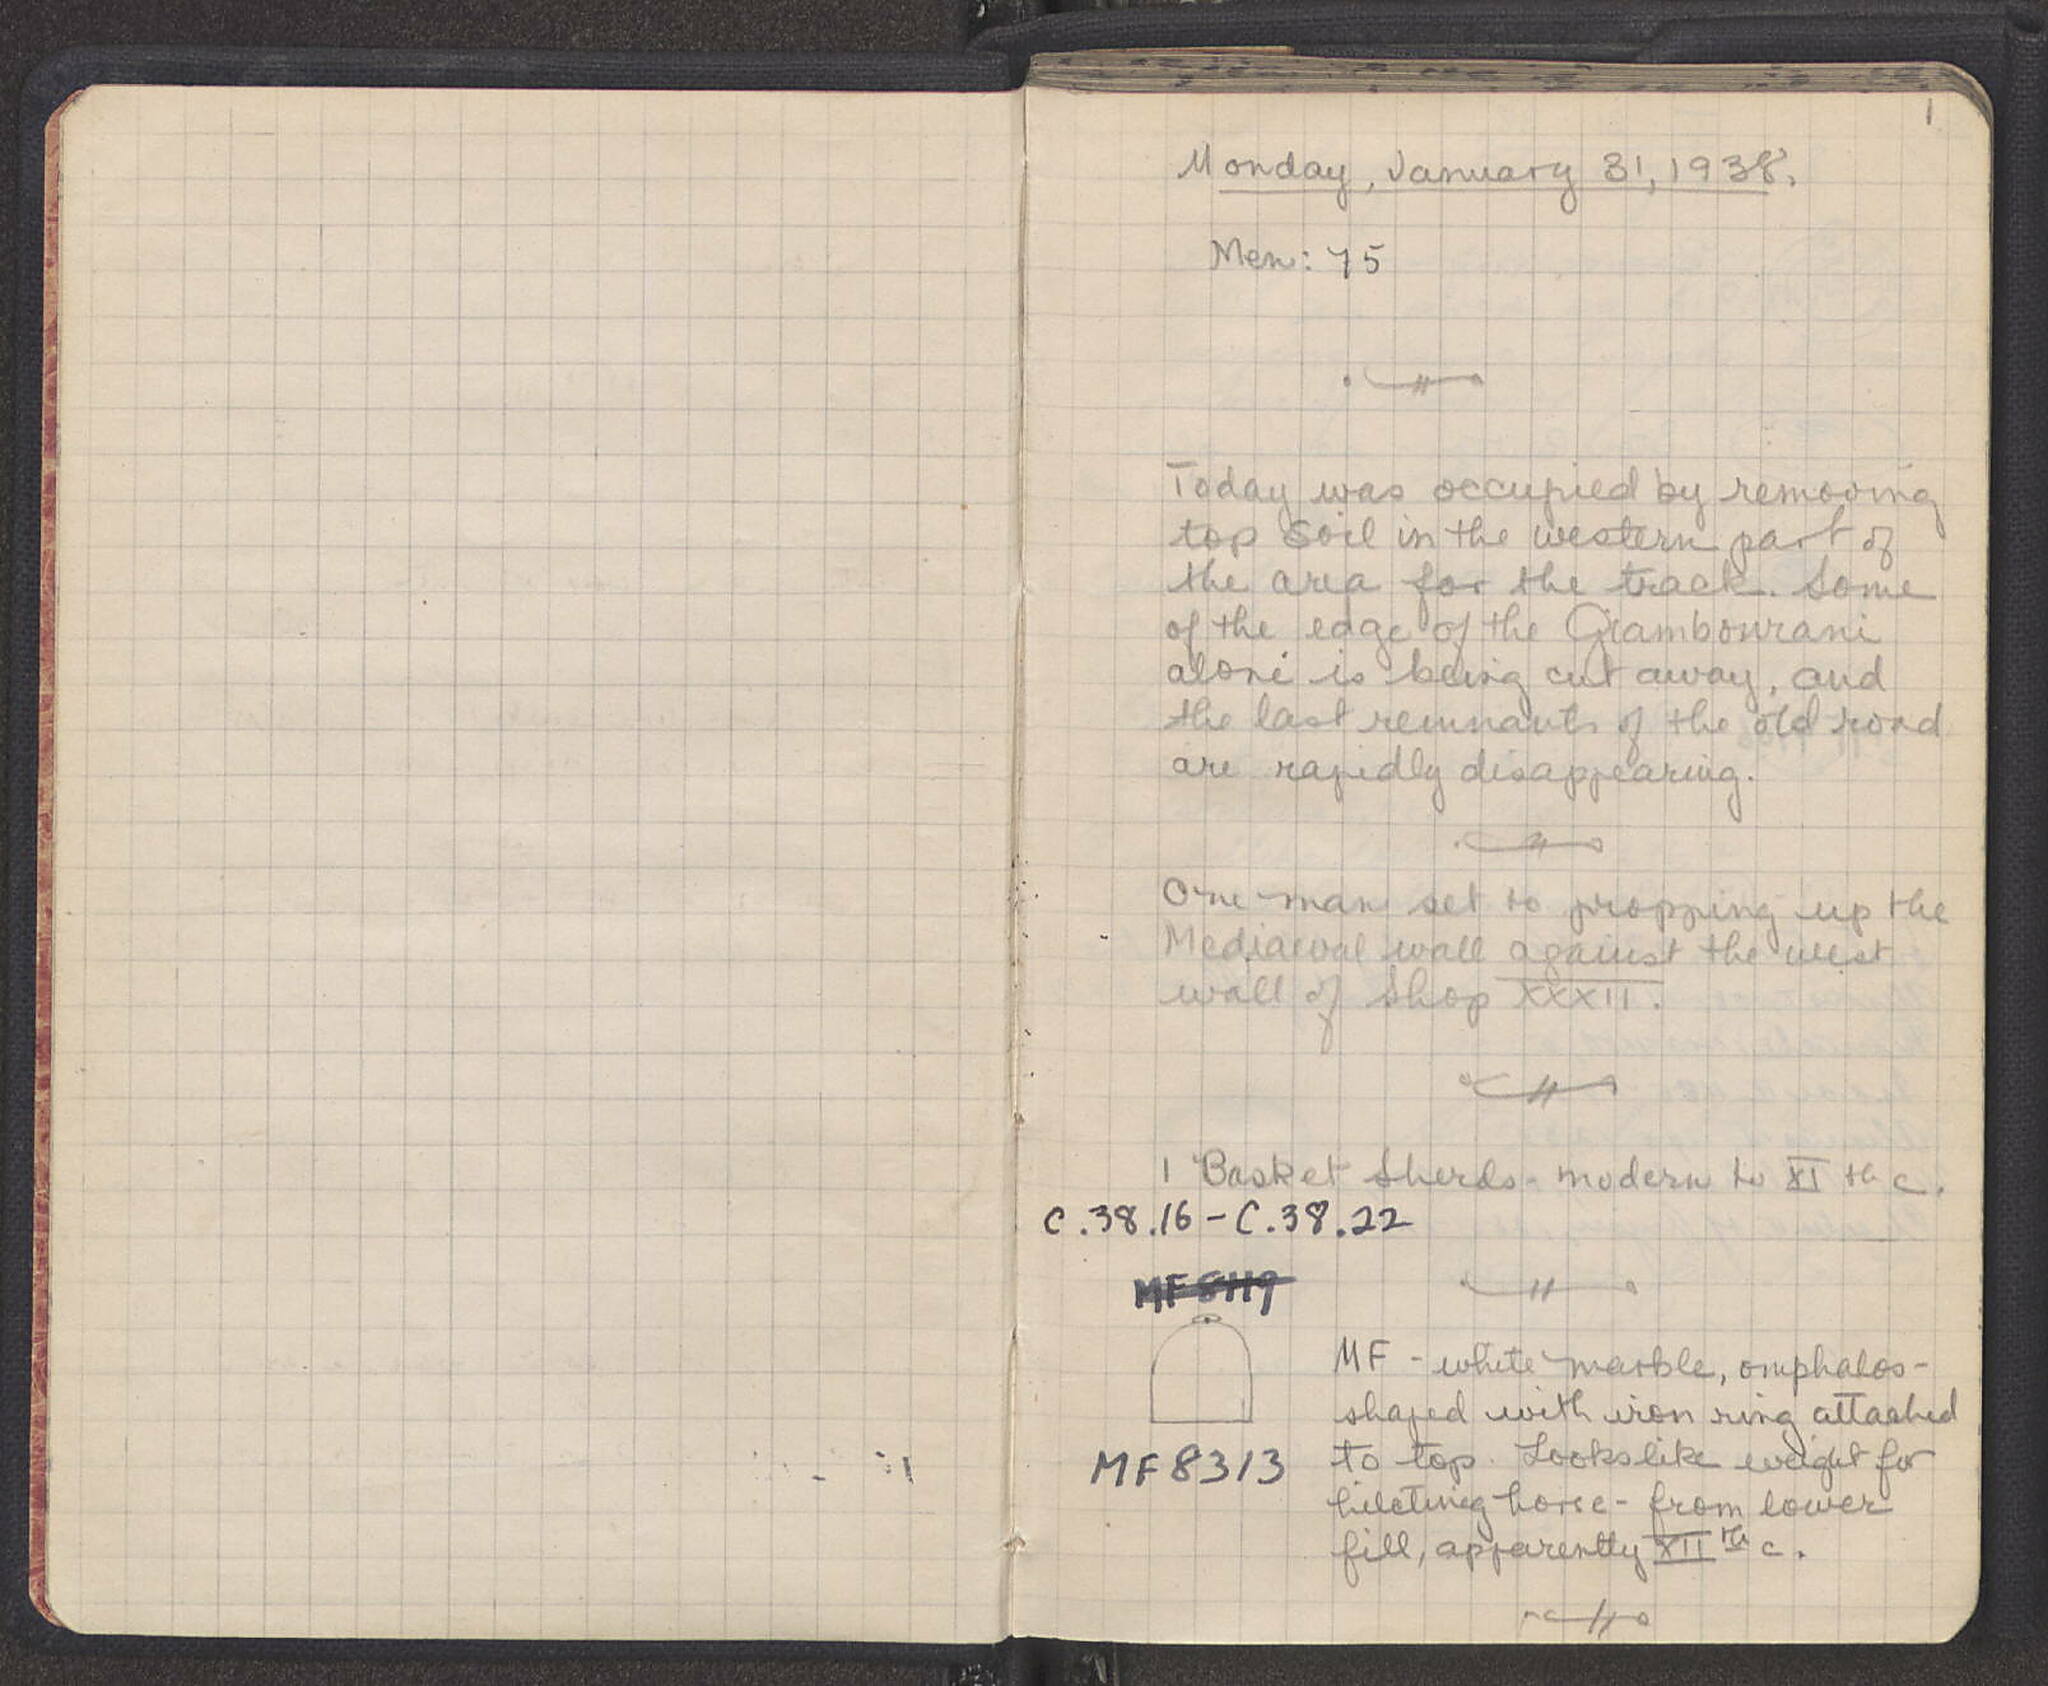 1
Monday, January 31, 1938.
Men: 75
Today was occupied by removing
top soil in the western part of
the area for the track. Some
of the edge of the Giambourani
aloni is being cut away, and
the last remnants of the old road
are rapidly disappearing.
One man set to propping up the
Mediaeval wall against the west
wall of Shop XXXII.
1 Basket Sherds - modern to XI th c.
C.38.16 - C.38.22
MF 8119
MF - white marble, omphalos-
shaped with iron ring attached
to top. Looks like weight for
MF 8313
horse - from lower
fill, apparently XII th c.